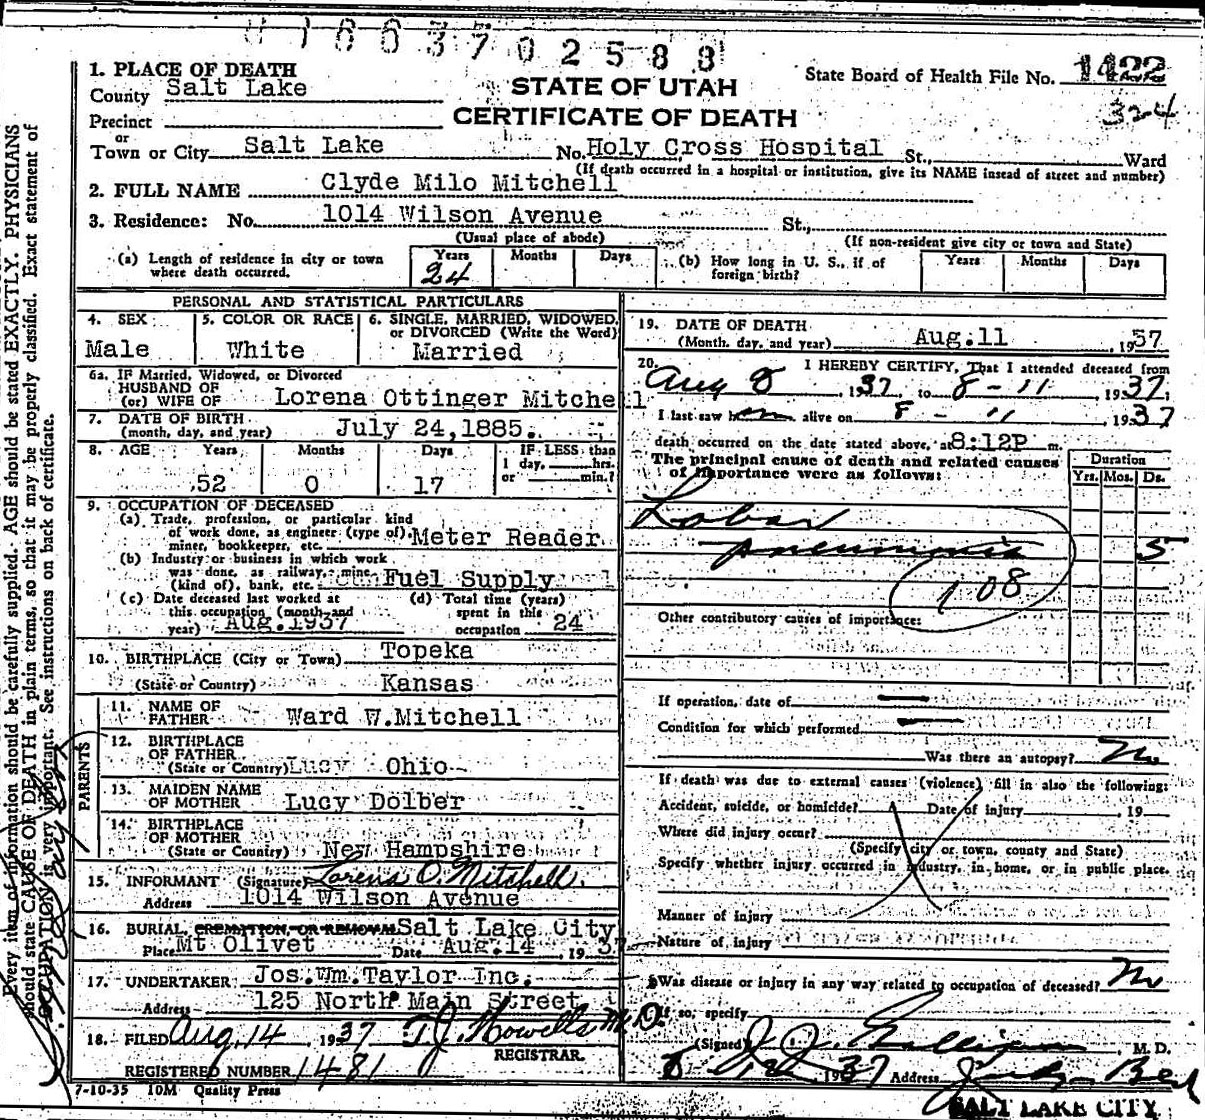 1 0 6 3 7 0 2 5 8 3
1. PLACE OF DEATH
County Salt Lake
STATE OF UTAH
CERTIFICATE OF DEATH
State Board of Health File No. 1422
324
Precinct
or
Town or City Salt Lake No. Holy Cross Hospital St., Ward
(If death occurred in a hospital or institution, give its NAME insead of street and number)
2. FULL NAME Clyde Milo Mitchell
3. Residence: No. 1014 Wilson Avenue St.,
(Usual place of abode) (If non-resident give city or town and State)
(a) Length of residence in city or town where death occurred. Years 24 Months Days
(b) How long in U. S., if of foreign birth? Years Months Days
PERSONAL AND STATISTICAL PARTICULARS
4. SEX Male
5. COLOR OR RACE White
6. SINGLE, MARRIED, WIDOWED, or DIVORCED (Write the Word) Married
6a. IF Married, Widowed, or Divorced
HUSBAND OF
(or) WIFE OF Lorena Ottinger Mitchell
7. DATE OF BIRTH
(month, day, and year) July 24,1885.
8. AGE Years 52 Months 0 Days 17
IF LESS than
1 day, hrs.
or min.?
9. OCCUPATION OF DECEASED
(a) Trade, profession, or particular kind
of work done, as engineer (type of)
miner, bookkeeper, etc. Meter Reader
(b) Industry or business in which work
was done, as railway, mine
(kind of), bank, etc. Fuel Supply
(c) Date deceased last worked at
this occupation (month and
year) Aug.1937
(d) Total time (years)
spent in this
occupation 24
10. BIRTHPLACE (City or Town) Topeka
(State or Country) Kansas
PARENTS
11. NAME OF
FATHER Ward W.Mitchell
12. BIRTHPLACE
OF FATHER
(State or Country) Lucy Ohio
13. MAIDEN NAME
OF MOTHER Lucy Dolber
14. BIRTHPLACE
OF MOTHER
(State or Country) New Hampshire
15. INFORMANT (Signature) Lorena O. Mitchell.
Address 1014 Wilson Avenue
16. BURIAL, CREMATION, OR REMOVAL Salt Lake City
Place Mt Olivet Date Aug.14 1937
17. UNDERTAKER Jos.Wm.Taylor Inc.
Address 125 North Main Street
18. FILED Aug, 14 1937 T.J. Howells M.D.
REGISTRAR.
REGISTERED NUMBER 1481
7-10-35 10M Quality Press
19. DATE OF DEATH
(Month, day, and year) Aug.11, 1937
20. I HEREBY CERTIFY, That I attended deceased from
Aug 8, 1937 to 8-11, 1937,
I last saw him alive on 8-11, 1937
death occurred on the date stated above, at 8:12P m.
The principal cause of death and related causes
of importance were as follows:
Duration
Yrs. Mos. Ds.
Lobar
pneumonia 5
108
Other contributory causes of importance:
If operation, date of —
Condition for which performed —
Was there an autopsy? No
If death was due to external causes (violence) fill in also the following:
Accident, suicide, or homicide? Date of injury , 19
Where did injury occur?
(Specify city or town, county and State)
Specify whether injury occurred in industry, in home, or in public place.
Manner of injury
Nature of injury
Was disease or injury in any way related to occupation of deceased? No
If so, specify
(Signed) M. D.
1937 Address
SALT LAKE CITY
Every item of information should be carefully supplied. AGE should be stated EXACTLY. PHYSICIANS
should state CAUSE OF DEATH in plain terms, so that it may be properly classified. Exact statement of
OCCUPATION is very important. See instructions on back of certificate.